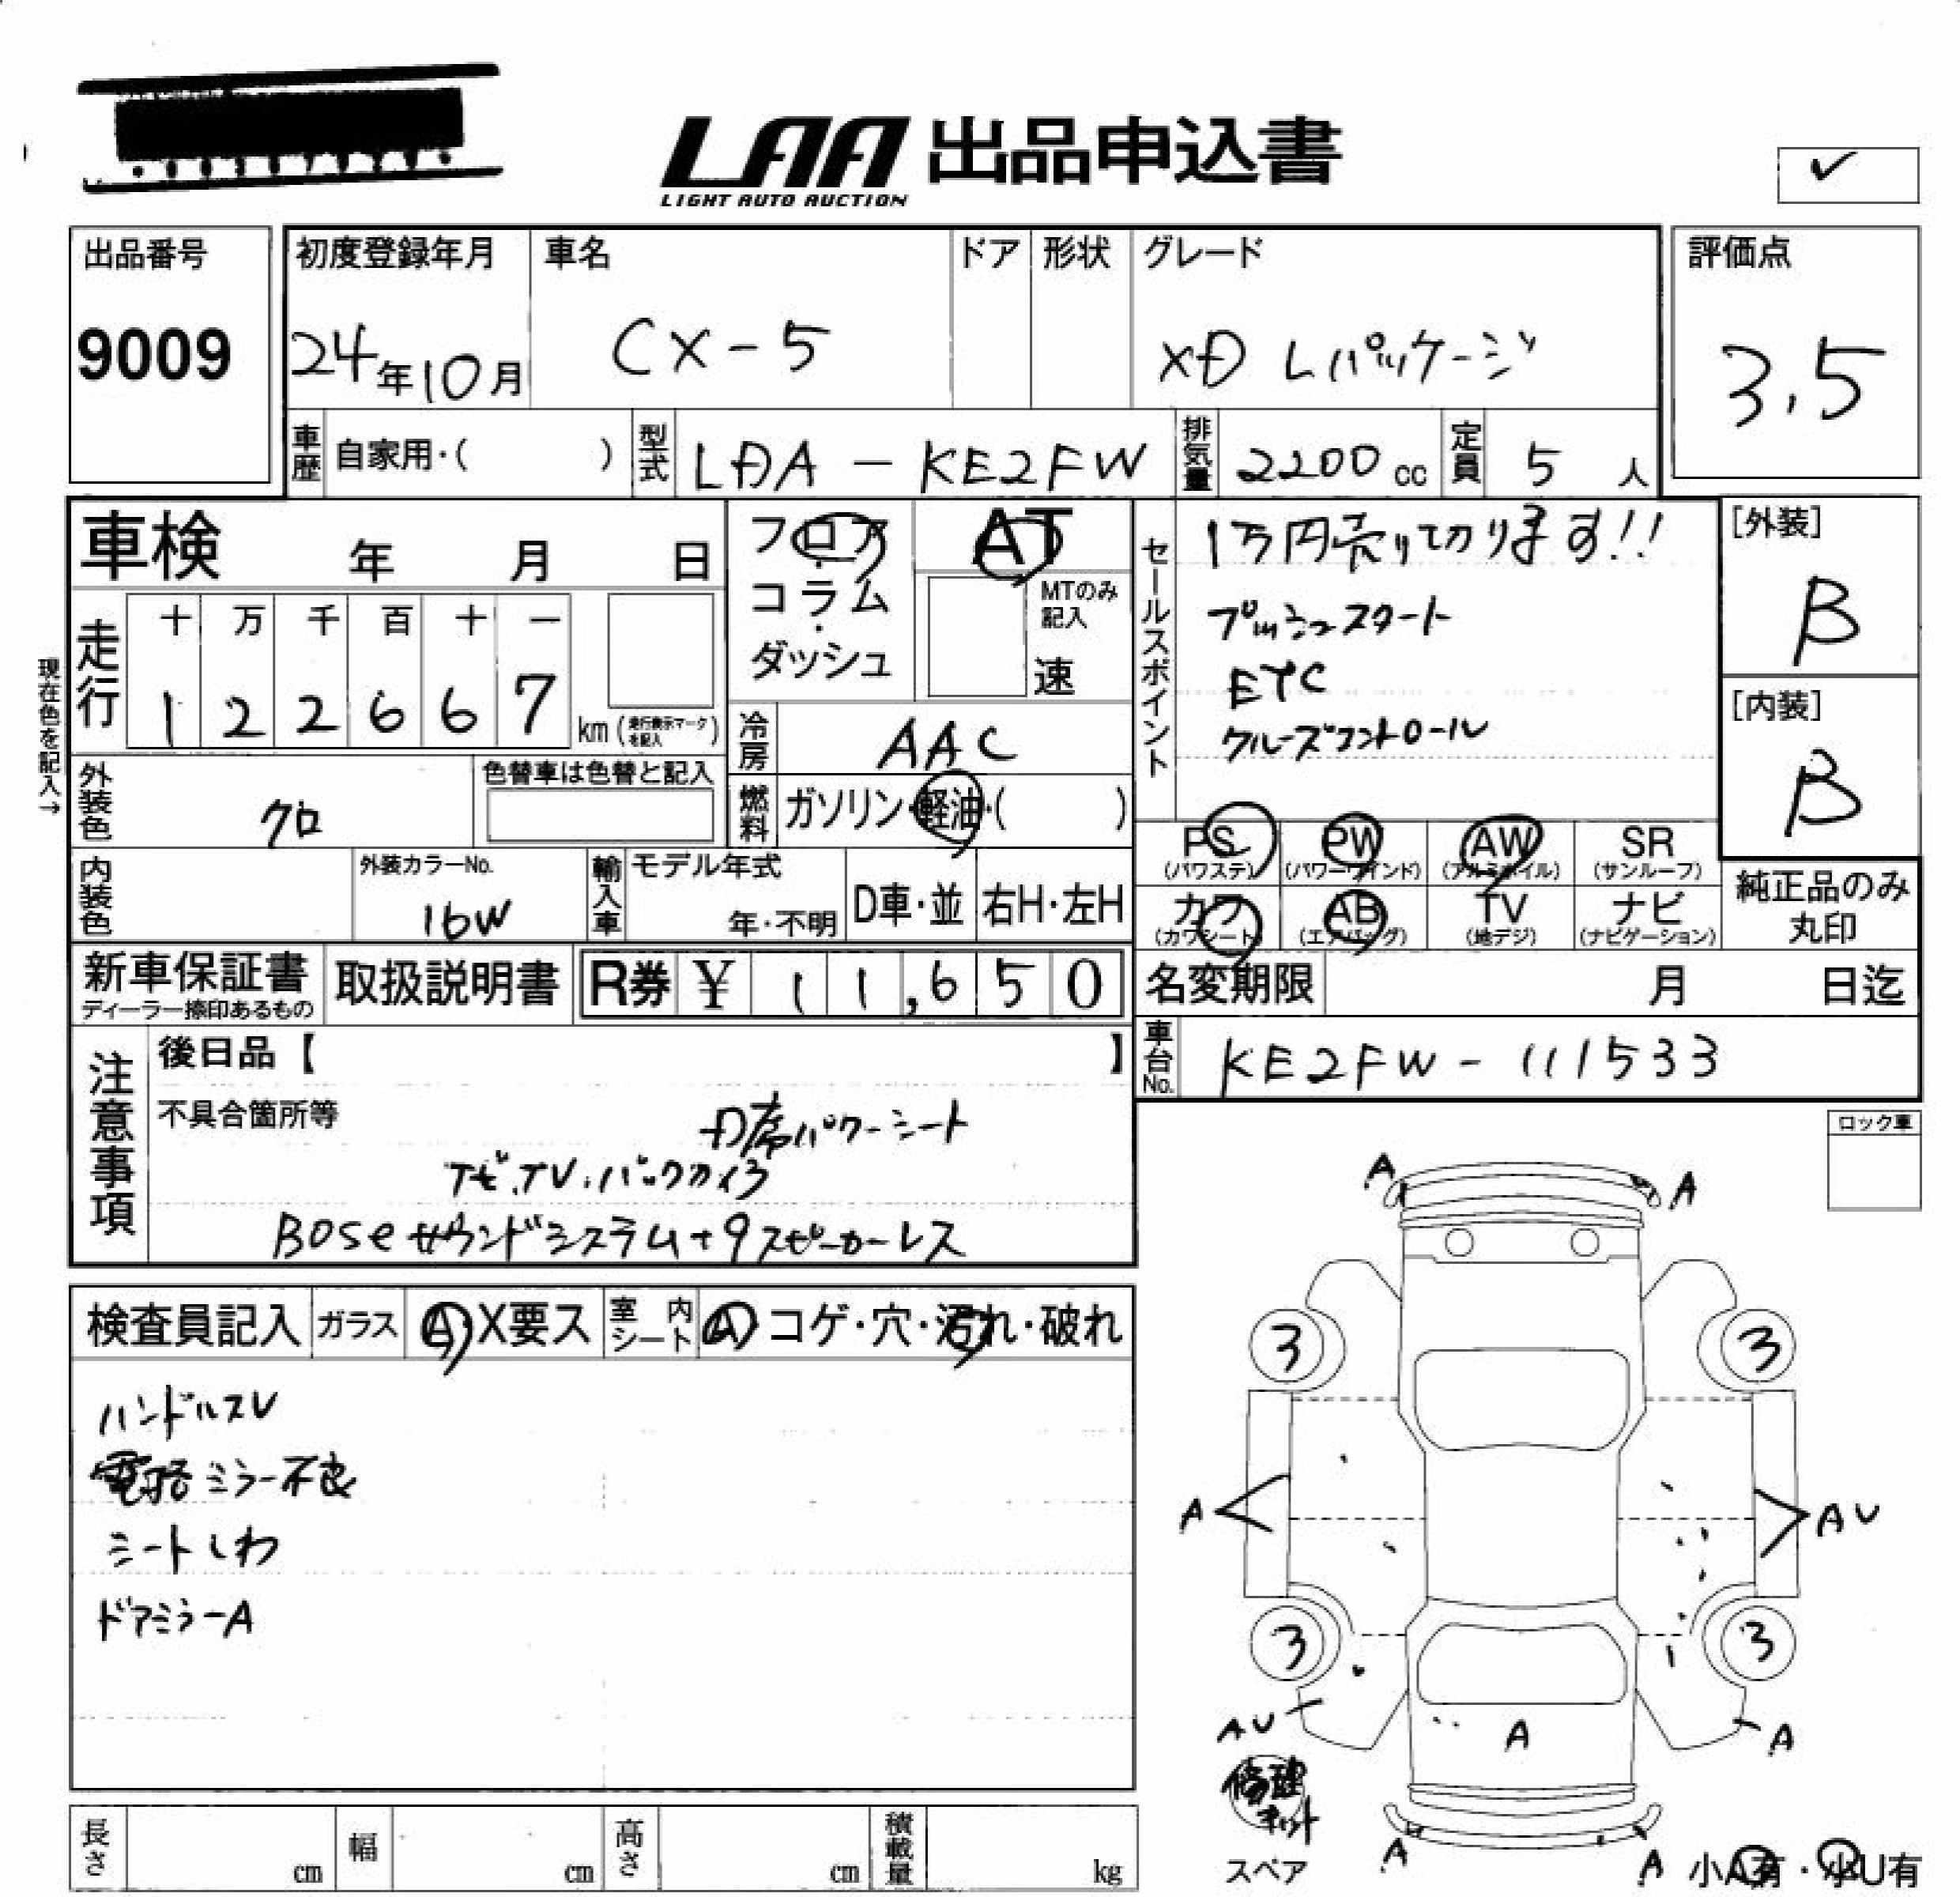 LAA 出品申込書
LIGHT AUTO AUCTION
✓
出品番号
9009
初度登録年月
24年10月
車名
CX-5
ドア
形状
グレード
XD Lパッケージ
評価点
3.5
車歴 自家用・( )
型式 LDA - KE2FW
排気量 2200 cc
定員 5 人
車検 年 月 日
走行
十 万 千 百 十 一
1 2 2 6 6 7 km (走行表示マークを記入)
現在色を記入→
外装色 クロ
色替車は色替と記入
内装色
外装カラーNo.
16W
輸入車 モデル年式
年・不明
D車・並
右H・左H
フロア・
コラム・
ダッシュ
AT
MTのみ記入
速
冷房 AAC
燃料 ガソリン・軽油・( )
セールスポイント
1万円売り切ります!!
プッシュスタート
ETC
クルーズコントロール
[外装]
B
[内装]
B
PS (パワステ)
PW (パワーウインド)
AW (アルミホイル)
SR (サンルーフ)
カワ (カワシート)
AB (エアバッグ)
TV (地デジ)
ナビ (ナビゲーション)
純正品のみ
丸印
新車保証書
ディーラー捺印あるもの
取扱説明書
R券 ¥ 11,650
名変期限 月 日迄
車台No. KE2FW - 111533
注意事項
後日品【 】
不具合箇所等
D席パワーシート
ナビ.TV.バックカメラ
BOSEサウンドシステム+9スピーカーレス
ロック車
検査員記入
ガラス Ⓐ・X要ス
室内シート Ⓐ コゲ・穴・汚れ・破れ
ハンドルスレ
電格ミラー不良
シートしわ
ドアミラーA
A
A
3
3
A
AU
3
3
AU
A
A
修理キット
スペア
A
A
小A有・小U有
長さ cm
幅 cm
高さ cm
積載量 kg